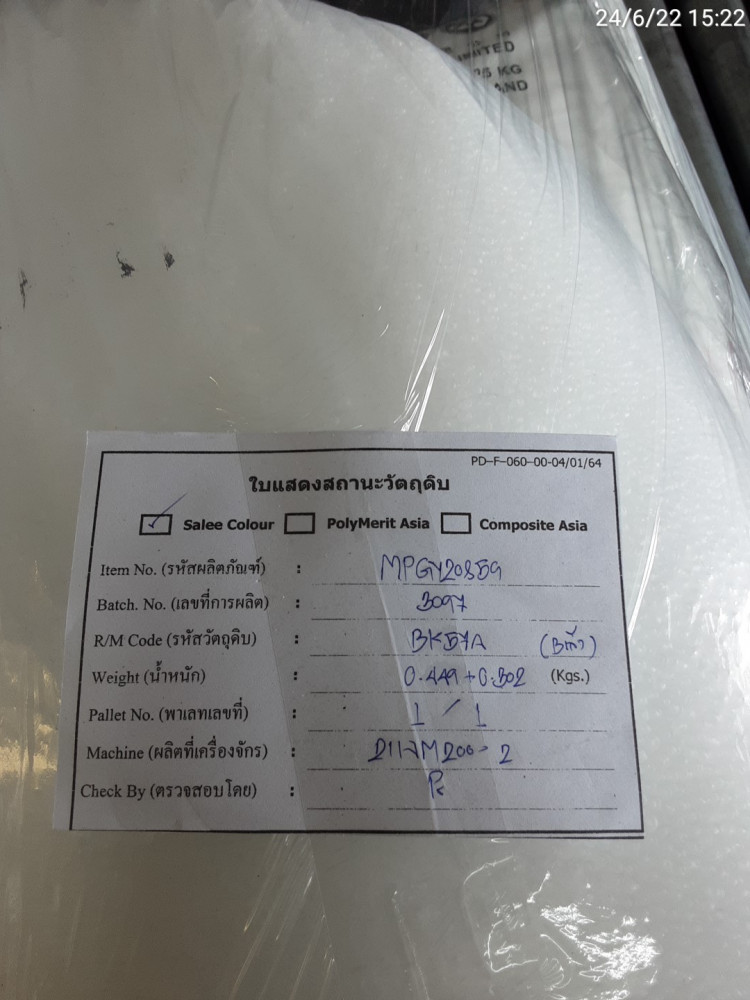 24/6/22 15:22
KG
PD-F-060-00-04/01/64
ใบแสดงสถานะวัตถุดิบ
Salee Colour PolyMerit Asia Composite Asia
Item No. (รหัสผลิตภัณฑ์) : MPGY20859
Batch. No. (เลขที่การผลิต) : 3097
R/M Code (รหัสวัตถุดิบ) : BK57A
Weight (น้ำหนัก) : 0.449+0.302 (Kgs.)
Pallet No. (พาเลทเลขที่) : 1 / 1
Machine (ผลิตที่เครื่องจักร) :
Check By (ตรวจสอบโดย) :